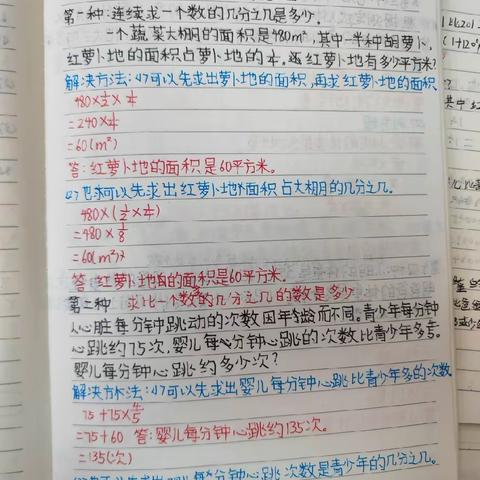 第一种:连续求一个数的几分之几是多少.
一个蔬菜大棚的面积是480m²,其中一半种胡萝卜,
红萝卜地的面积占萝卜地的1/4.红萝卜地有多少平方米?
解决方法:(1)可以先求出萝卜地的面积,再求红萝卜地的面积
480×1/2×1/4
=240×1/4
=60(m²)
答:红萝卜地的面积是60平方米。
(2)也可以先求出红萝卜地面积占大棚的几分之几。
480×(1/2×1/4)
=480×1/8
=60(m²)
答:红萝卜地的面积是60平方米。
第二种 求比一个数多的几分之几的数是多少
人心脏每分钟跳动的次数因年龄而不同。青少年每分钟
心跳约75次,婴儿每分钟心跳的次数比青少年多4/5。
婴儿每分钟心跳约多少次?
解决方法:(1)可以先求出婴儿每分钟心跳比青少年多的次数
75+75×4/5
=75+60 答:婴儿每分钟心跳约135次。
=135(次)
婴儿每分钟心跳次数是青少年的几分之几。